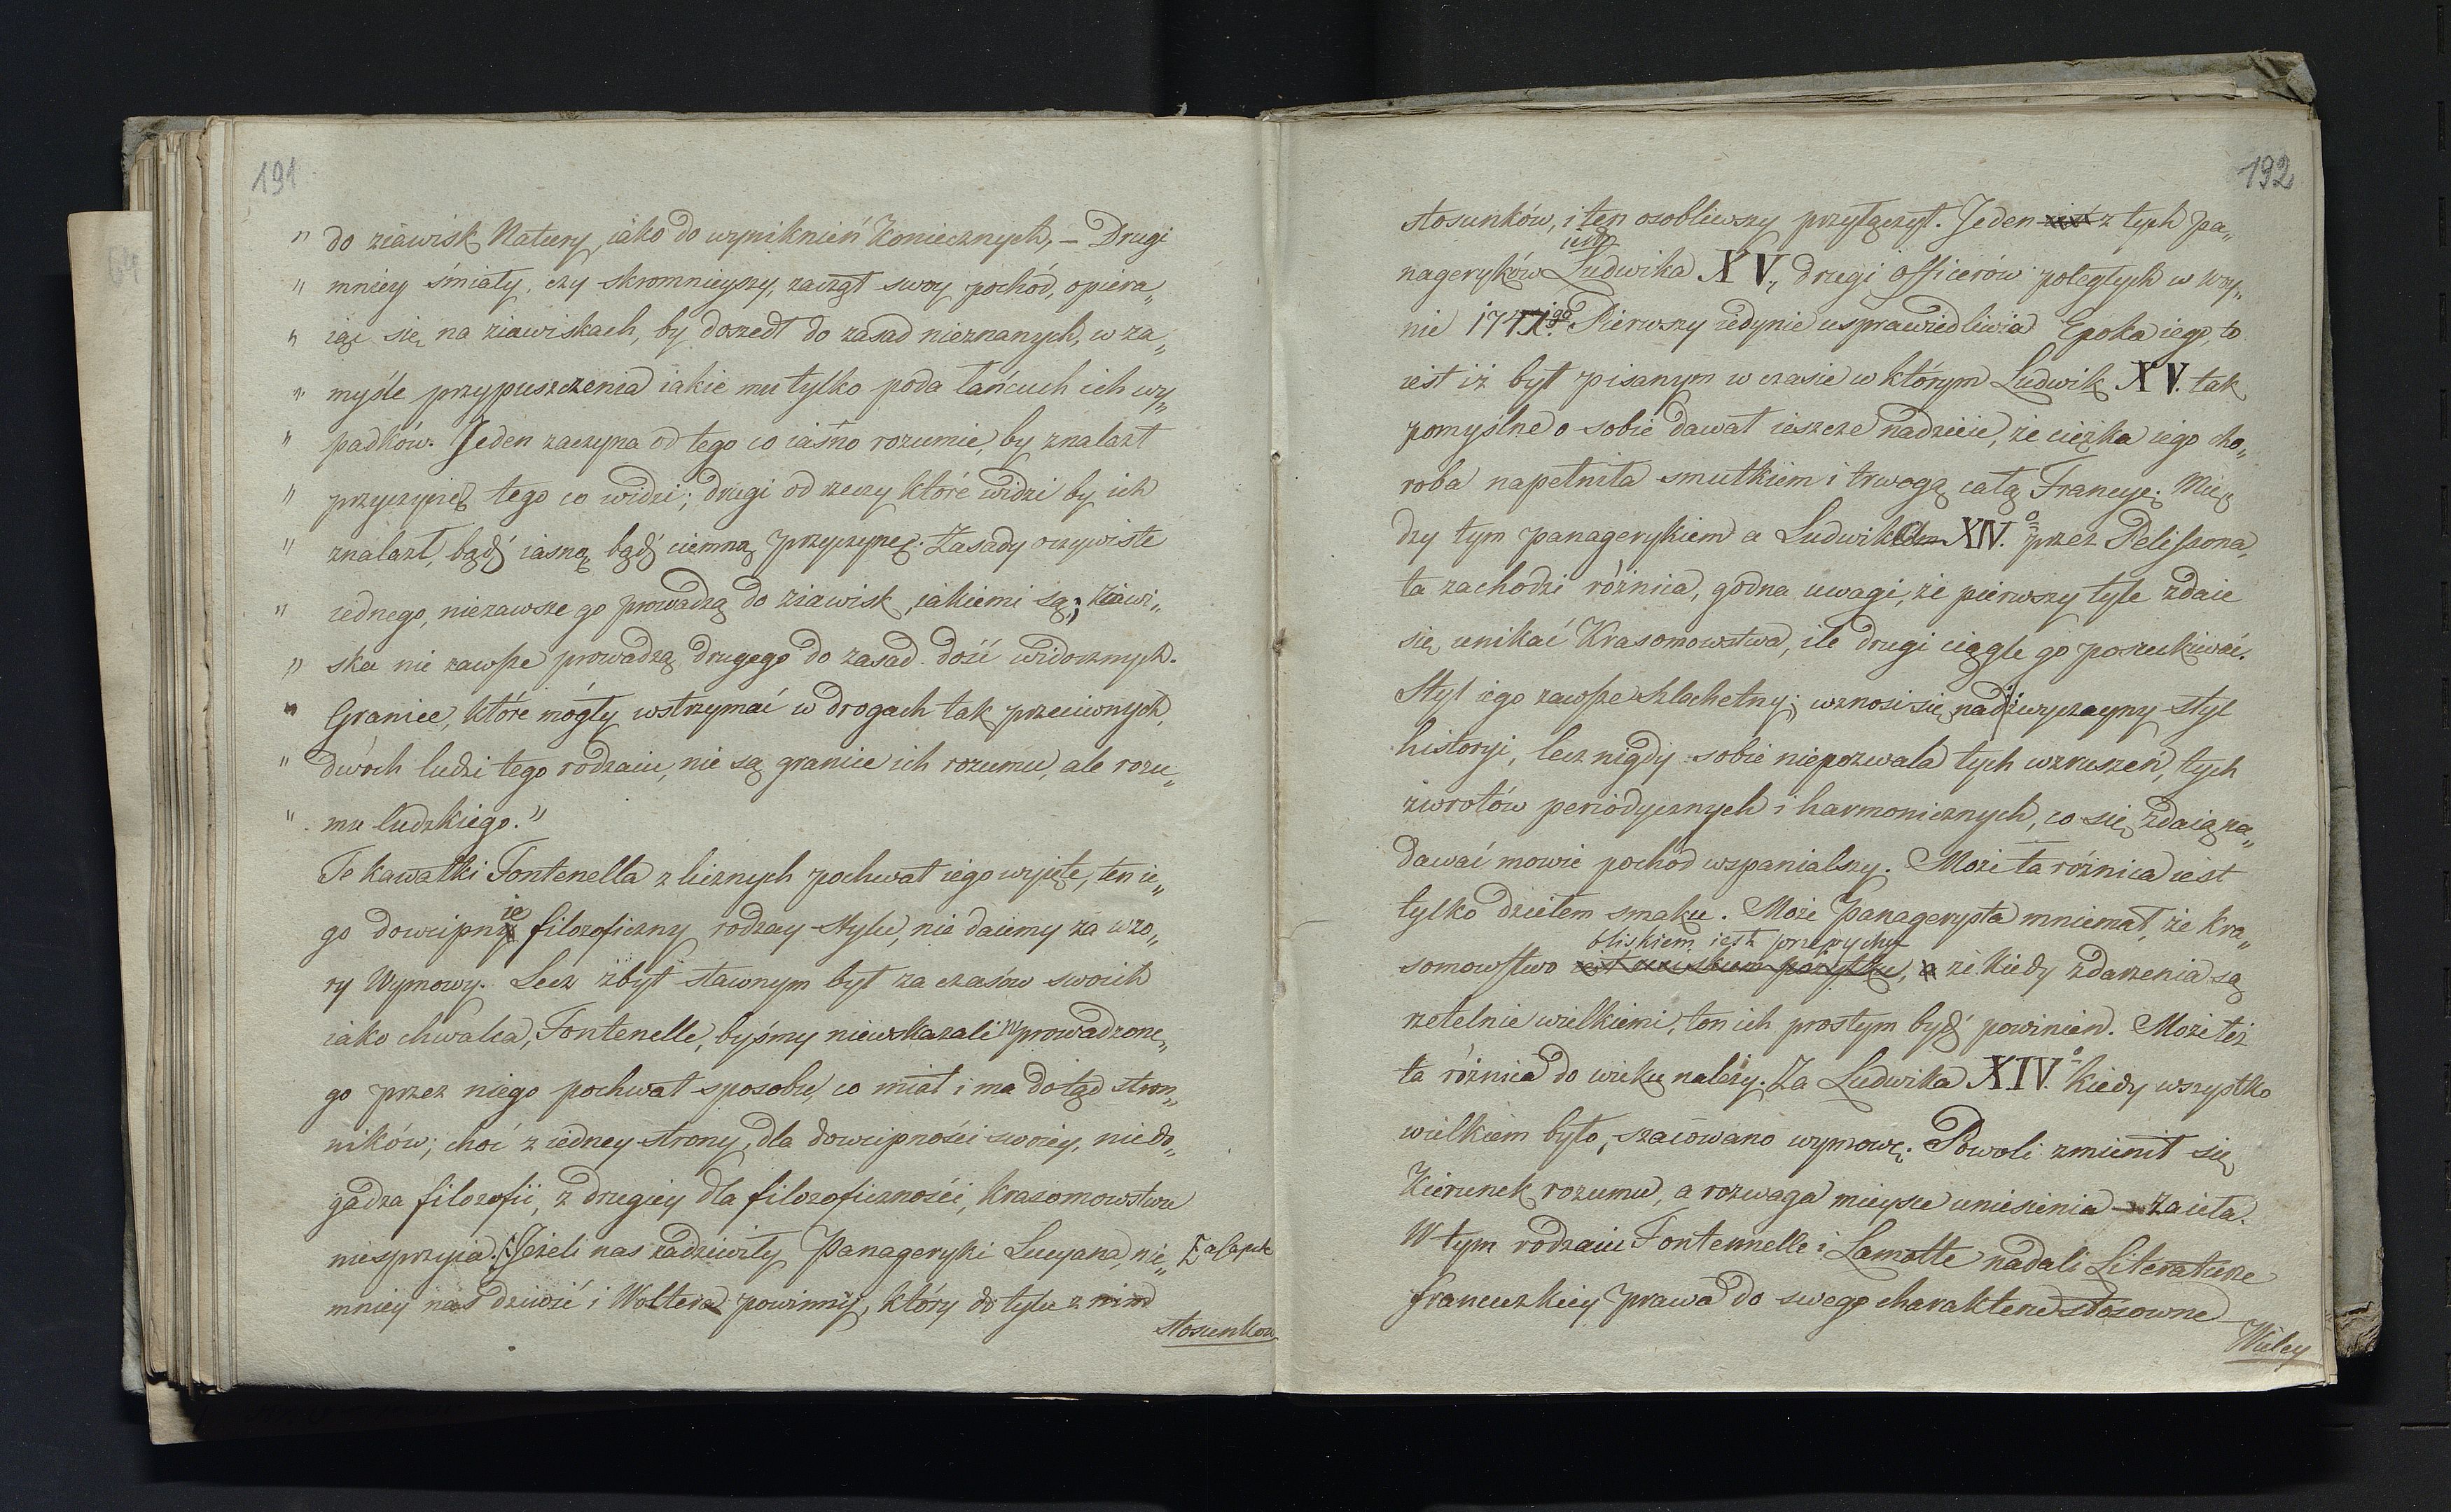 191
" do ziawisk Natury, iako do wyniknień koniecznych, – Drugi
" mniey śmiały, czy skromnieyszy, zaczął swoy pochód, opiera„
" iąc się na ziawiskach, by doszedł do zasad nieznanych, w za„
" myśle przypuszczenia iakie mu tylko poda łańcuch ich wy„
" padków. Jeden zaczyna od tego co iasno rozumie, by znalazł
" przyczynę tego co widzi; drugi od rzeczy które widzi by ich
" znalazł, bądź iasną bądź ciemną przyczynę. Zasady oczywiste
" iednego, niezawsze go prowadzą do ziawisk, iakiemi są; ziawi„
" ska nie zawsze prowadzą drugego do zasad dość widocznych.
" Granice, które mogły wstrzymać w drogach tak przeciwnych,
" dwóch ludzi tego rodzaiu, nie są granice ich rozumu, ale rozu„
" mu ludzkiego."
Te kawałki Fontenella z licznych pochwał iego wyięte, ten ie„
go dowcipnie filozoficzny rodzay stylu, nie daiemy za wzo„
ry Wymowy. Lecz zbyt sławnym był za czasów swoich
iako chwalca, Fontenelle, byśmy niewskazali wprowadzone„
go przez niego pochwał sposobu, co miał i ma dotąd stron„
ników; choć z iedney strony, dla dowcipności swoiey, niedo„
gadza filozofii, z drugiey dla filozoficzności, krasomowstwu
niesprzyia. Jeżeli nas zadziwiły Panageryki Lucyana, nie„
mniey nas dziwić i Woltera powinny, który do tylu z nim
stosunków
192
stosunków, i ten osobliwszy przyłączył. Jeden z tych pa„
nageryków iest Ludwika XV., drugi officerów poległych w woy„
nie 1741go. Pierwszy iedynie usprawiedliwia Epoka iego, to
iest iż był pisanym w czasie w którym Ludwik XV. tak
pomyślne o sobie dawał ieszcze nadzieie, że ciężka iego cho„
roba napełniła smutkiem i trwogą całą Francyę. Mię„
dzy tym panagerykiem a Ludwika XIV.o przez Pelissona,
ta zachodzi różnica, godna uwagi, że pierwszy tyle zdaie
się unikać Krasomowstwa, ile drugi ciągle go poszukiwać.
Styl iego zawsze szlachetny; wznosi się nad zwyczayny styl
historyi, lecz nigdy sobie niepozwala tych wzruszeń, tych
zwrotów periodycznych i harmonicznych, co się zdaią na„
dawać mowie pochód wspanialszy. Może ta różnica iest
tylko dziełem smaku. Może Panagerysta mniemał, że kra„
somowstwo bliskiem iest przepychu, że kiedy zdarzenia są
rzetelnie wielkiemi, ton ich prostym bydź powinien. Może też
ta różnica do wieku należy. Za Ludwika XIV.o kiedy wszystko
wielkiem było, szacowano wymowę. Powoli zmienił się
kierunek rozumu, a rozwaga mieysce uniesienia zaięła.
W tym rodzaiu Fontennelle i Lamotte nadali Literaturze
francuzkiey prawa do swego charakteru stosowne